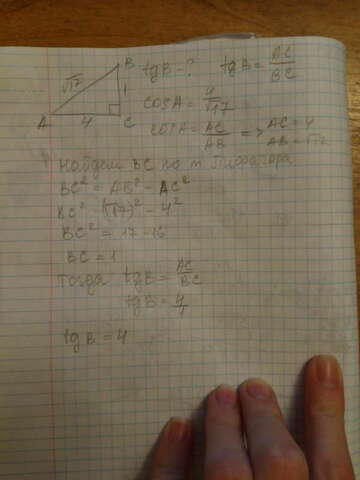 B tgB - ? tgB = AC/BC
√17 1
cosA = 4/√17
A 4 C
cosA = AC/AB => AC = 4
AB = √17
Найдем BC по т. Пифагора
BC² = AB² - AC²
BC² (√17)² - 4²
BC² = 17 - 16
BC = 1
Тогда tgB = AC/BC
tgB = 4/1
tgB = 4